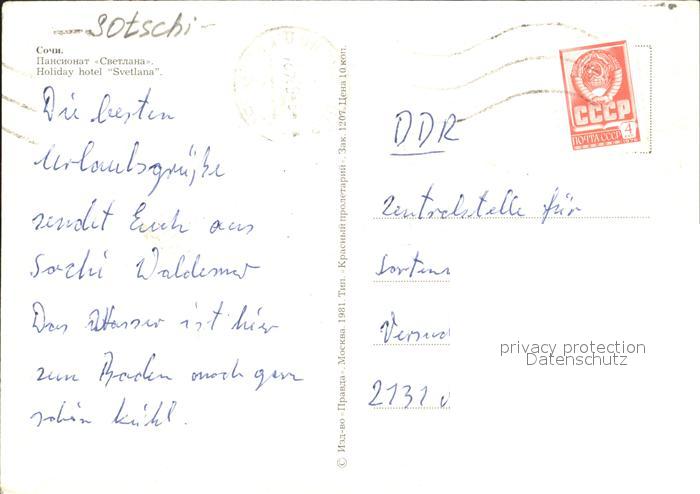 Sotschi
Сочи.
Пансионат «Светлана».
Holiday hotel "Svetlana".
Die besten
Urlaubsgrüße
sendet Euch aus
Sochi Waldemar
Das Wasser ist hier
zum Baden noch ganz
schön kühl.
© Изд-во «Правда». Москва. 1981. Тип. «Красный пролетарий». Зак. 1207. Цена 10 коп.
СССР
ПОЧТА СССР 4
DDR
Zentralstelle für
Sorten
Versuc
2131
privacy protection
Datenschutz